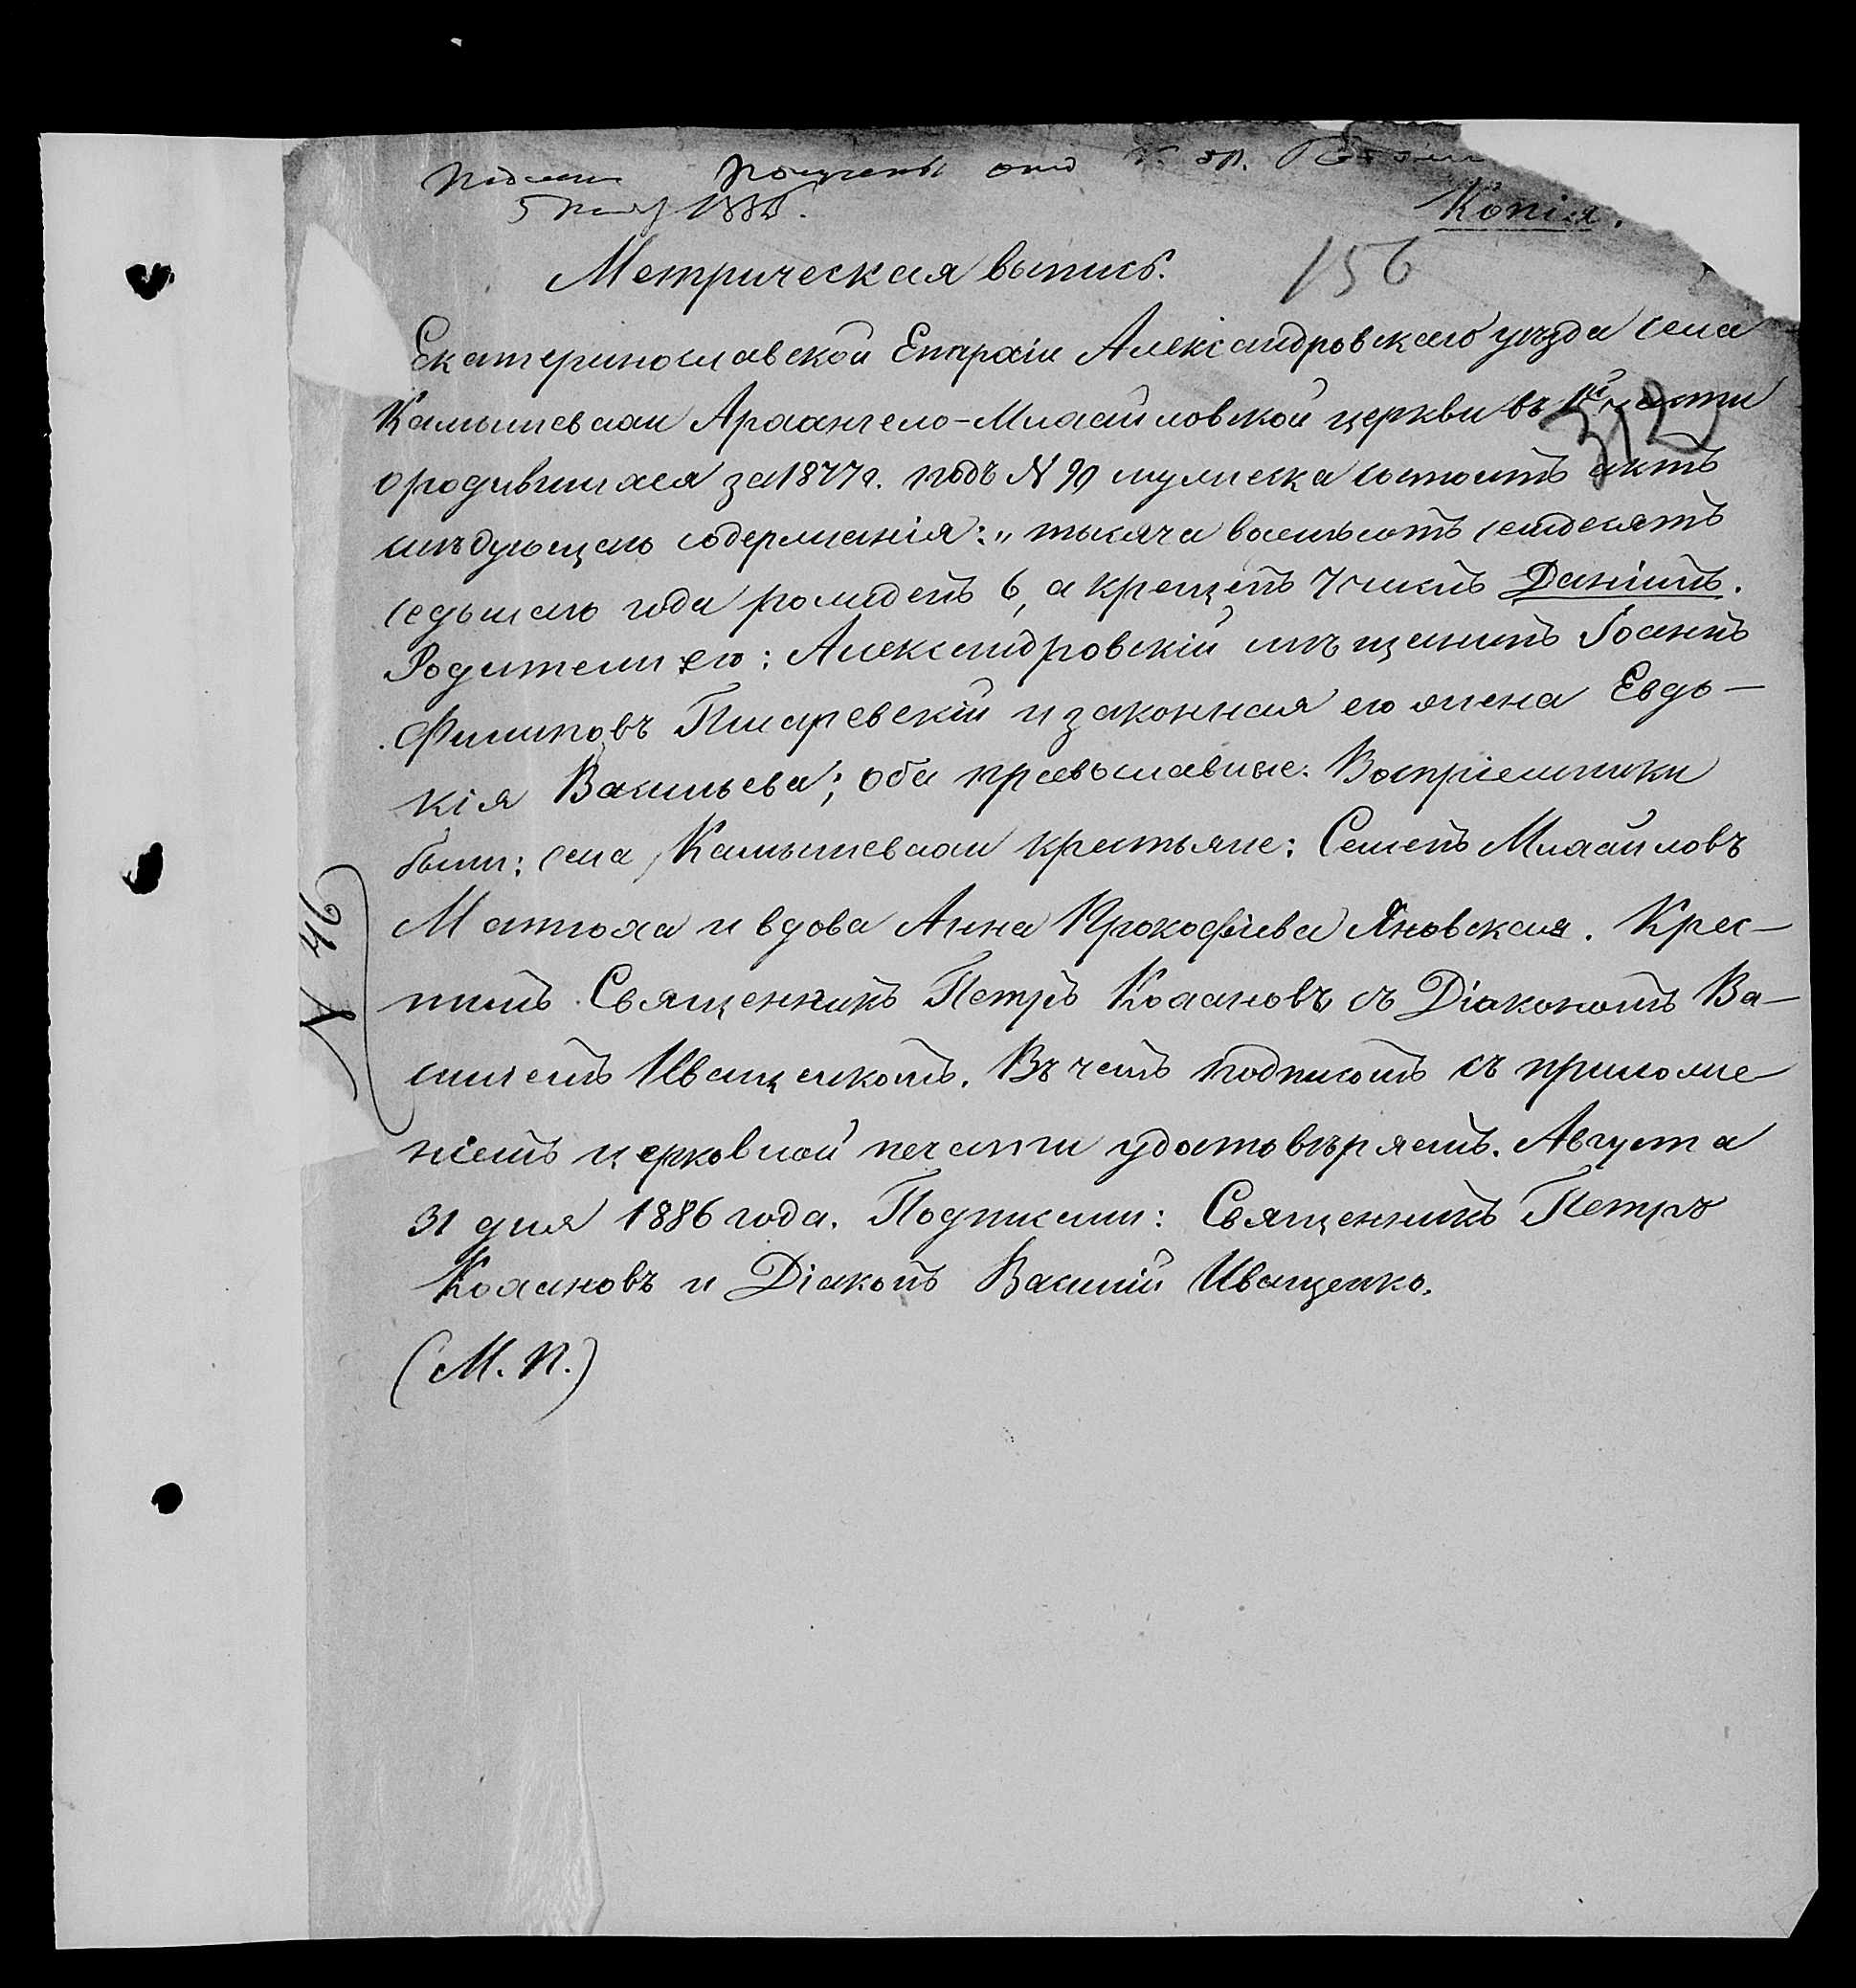 Подлин получены отъ
5 1886.
Копія.
Метрическая выпись.
156
Екатеринославской Епархіи Александровскаго уѣзда села
Камышевахи Архангело-Михайловской церкви въ 1й части
312
о родившихся за 1877 г. подъ N 90 мужеска состоитъ актъ
слѣдующаго содержанія: „тысяча восемьсотъ семдесятъ
седьмаго года рожденъ 6, а крещенъ 7 числъ Даніилъ.
Родители его: Александровскій мѣщанинъ Іоаннъ
Филиповъ Писаревскій и законная его жена Евдо-
кія Васильева; оба православные. Воспріемники
были: села Камышевахи крестьяне: Семенъ Михайловъ
Матюха и вдова Анна Прокофіева Яновская. Крес-
тилъ Священникъ Петръ Кохановъ съ Діакономъ Ва-
силіемъ Иващенкомъ. Въ чемъ подписомъ съ приложе
ніемъ церковной печати удостовѣряемъ. Августа
31 дня 1886 года. Подписали: Священникъ Петръ
Кохановъ и Діаконъ Василій Иващенко.
(М. П.)
46